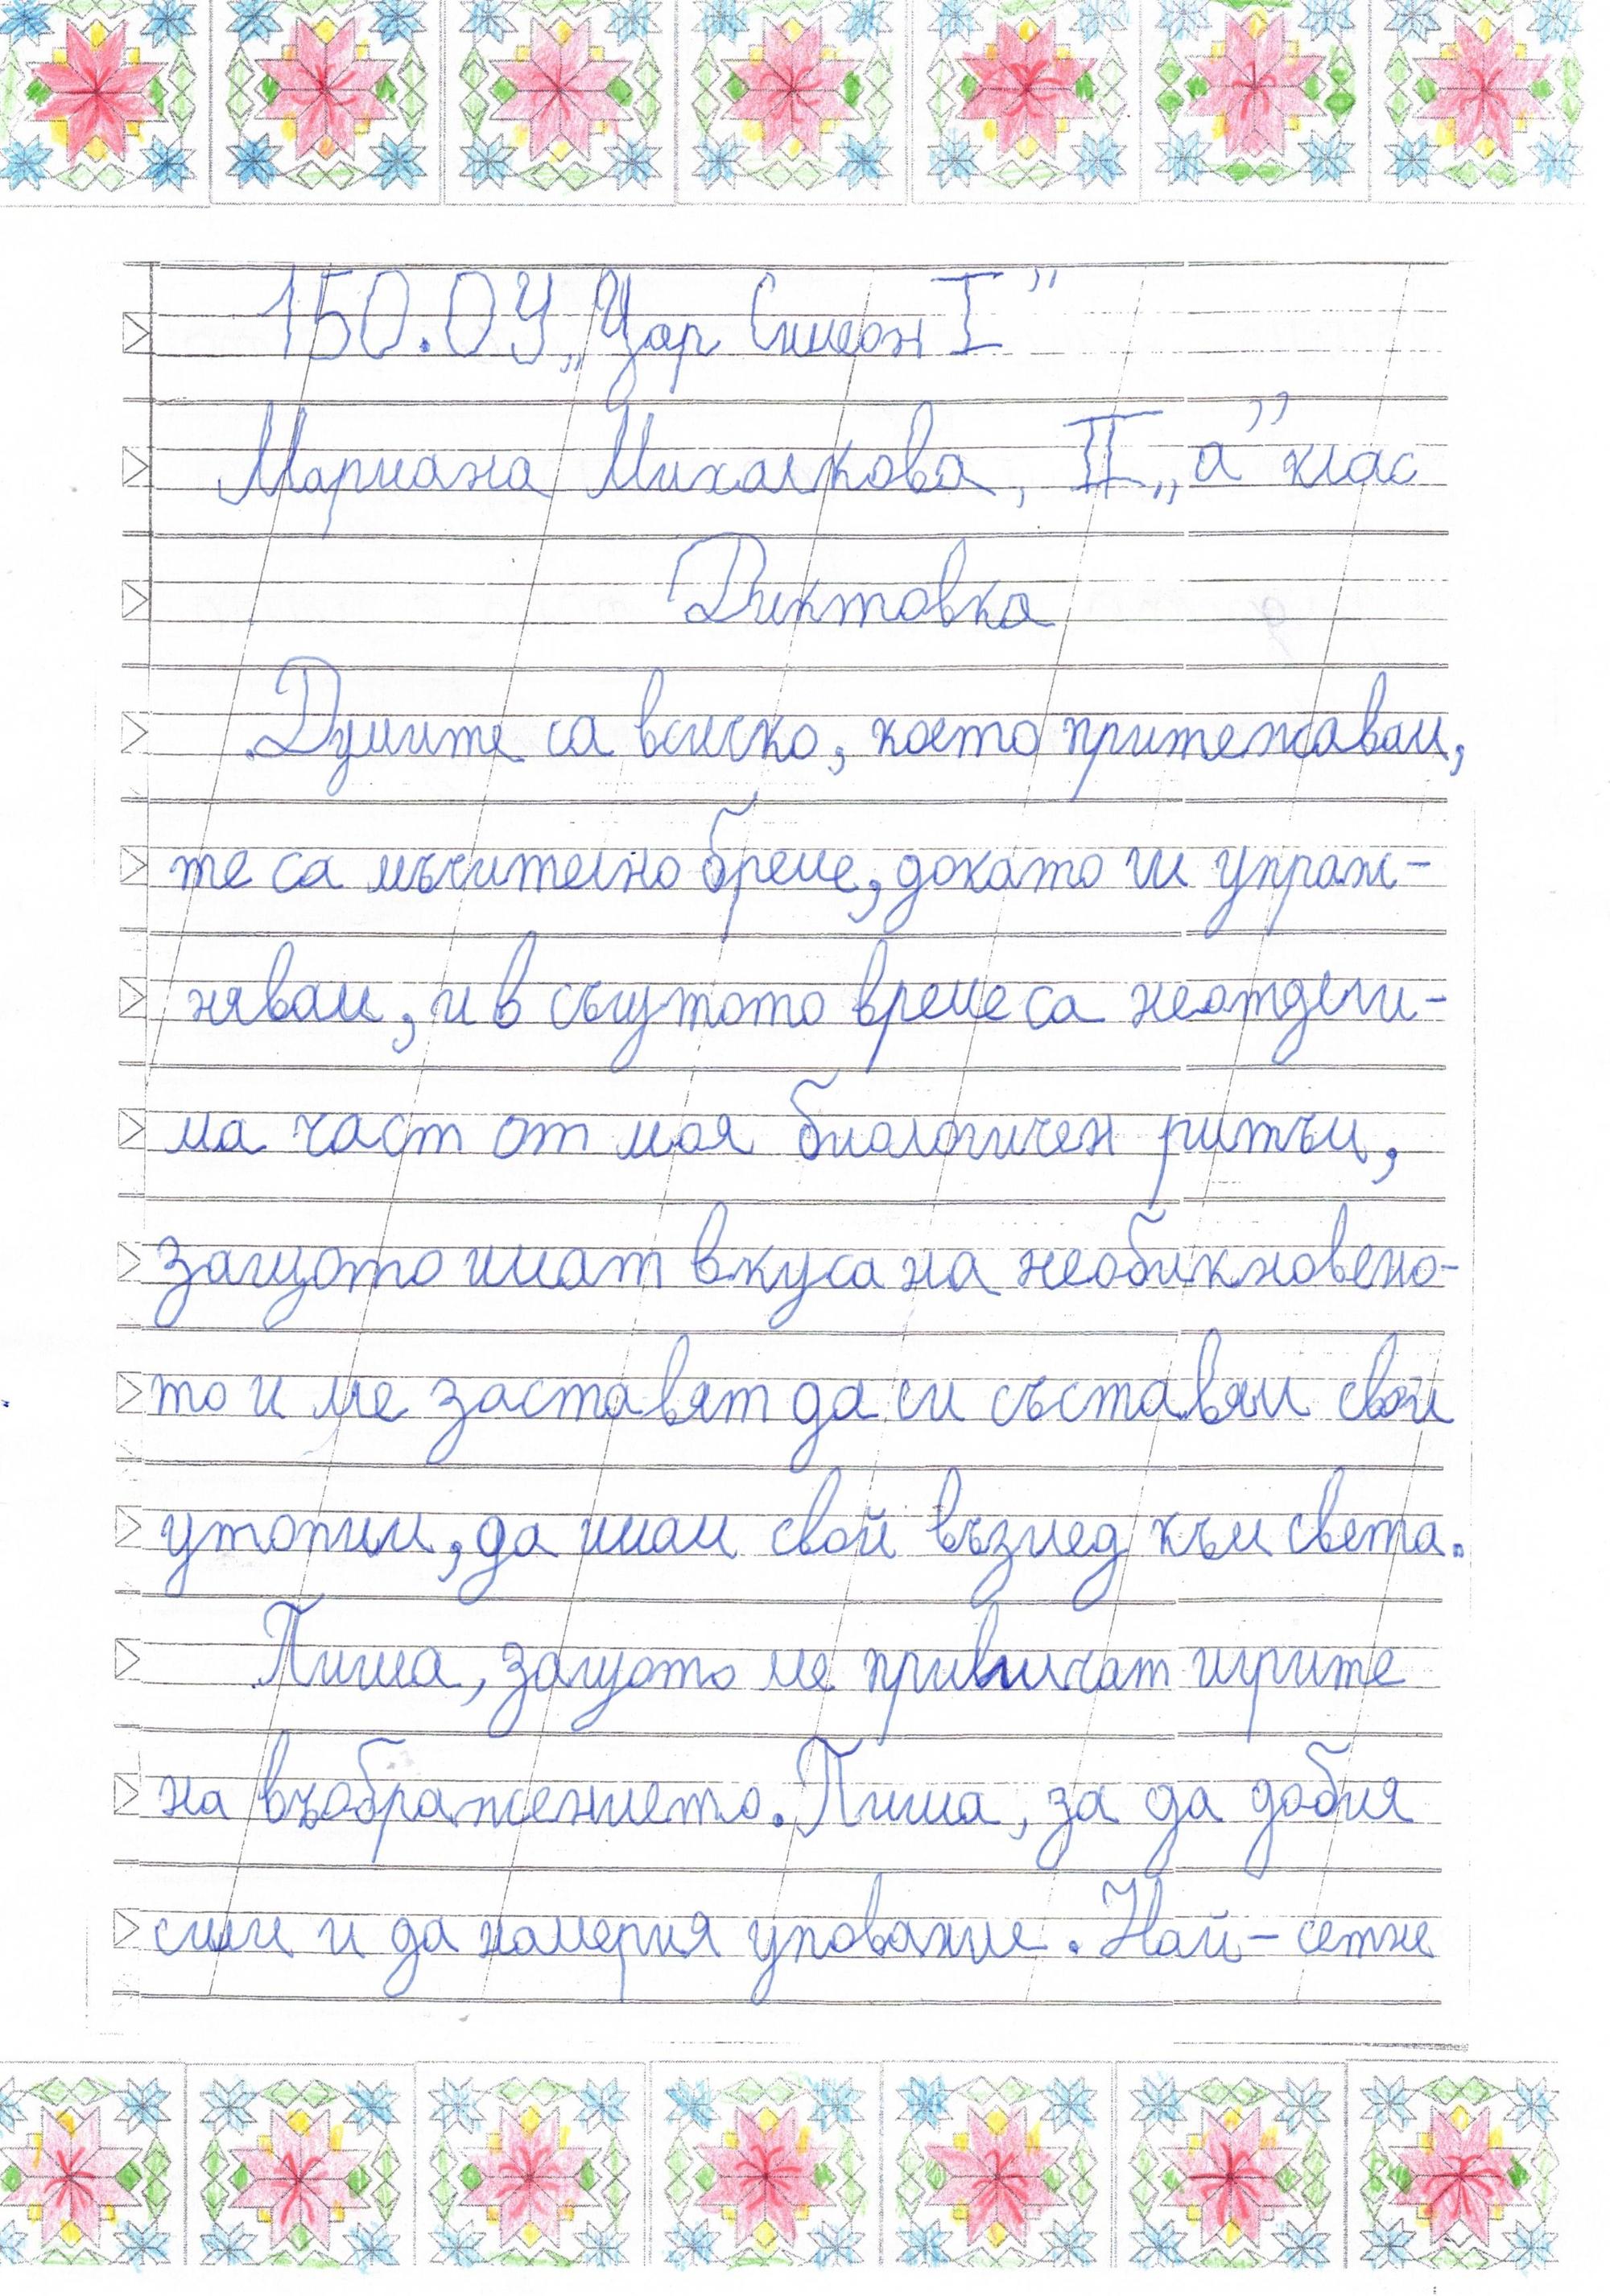 150.ОУ „Цар Симеон I”
Мариана Михалкова, II „а” клас
Диктовка
Думите са всичко, което притежавам,
те са мъчително бреме, докато ги упраж-
нявам, и в същтото време са неотдели-
ма част от моя биологичен ритъм,
защото имат вкуса на необикновено-
то и ме заставят да си съставям свои
утопии, да имам свой възглед към света.
Пиша, защото ме привличат игрите
на въображението. Пиша, за да добия
сили и да намеря упование. Най-сетне